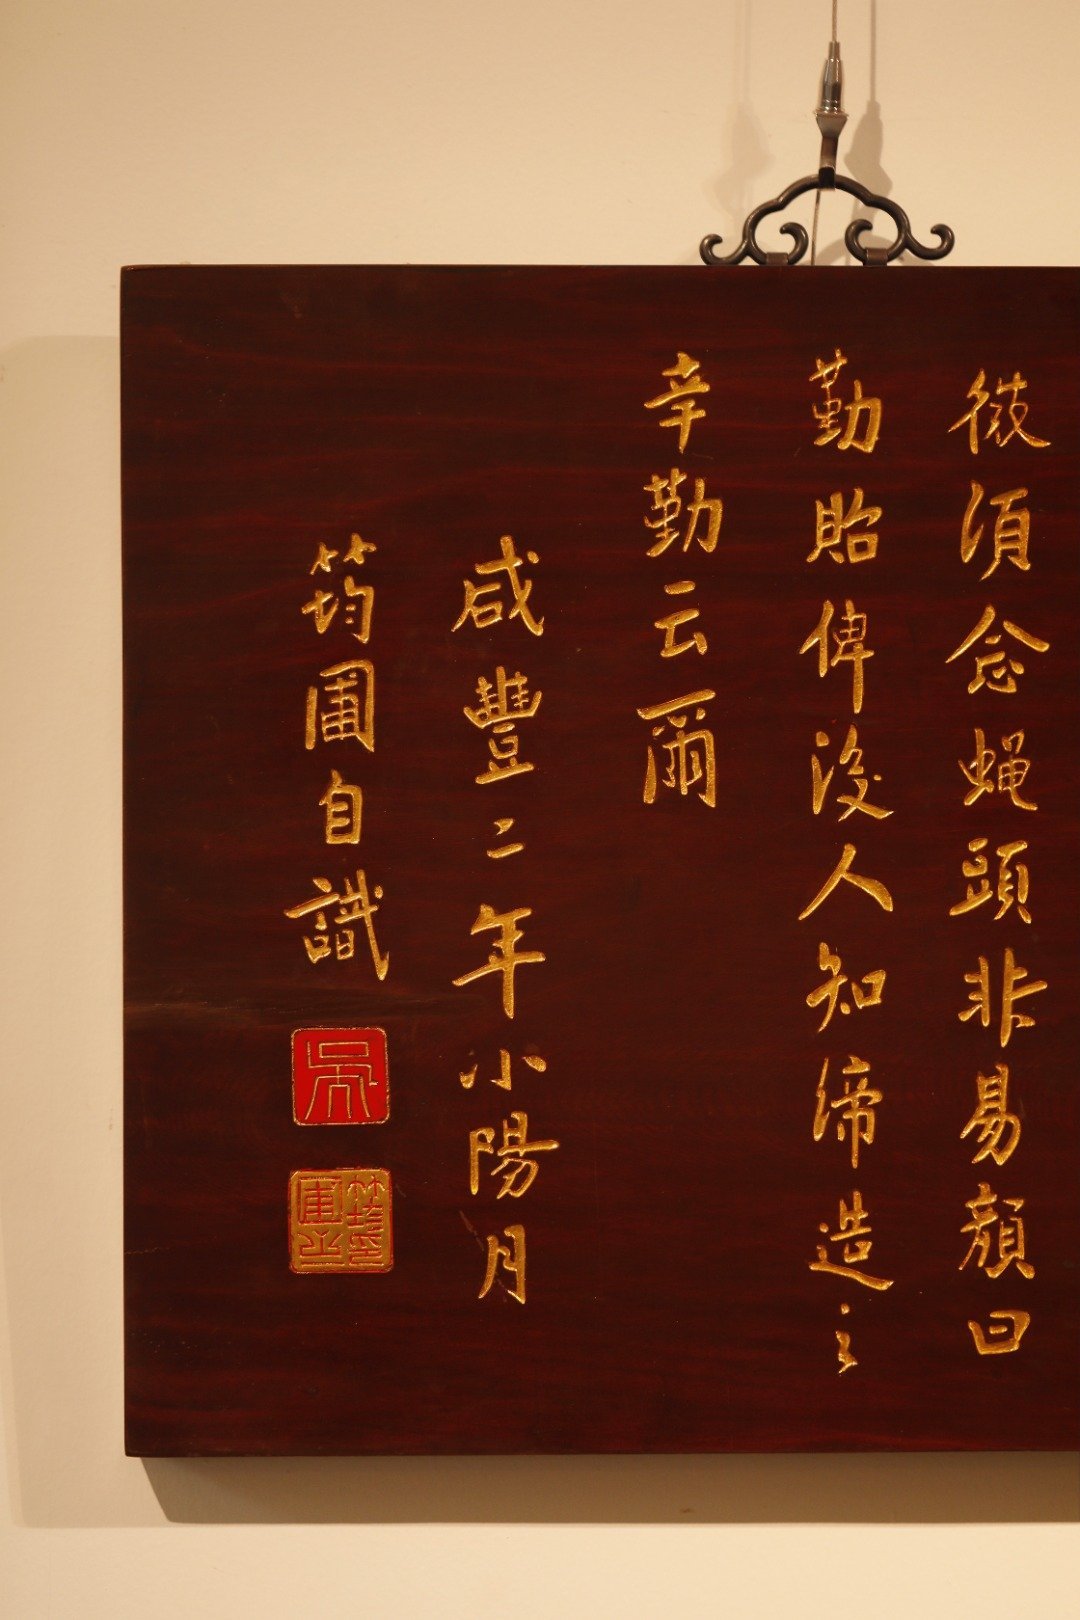 微須念蝇頭非易顏曰
勤貽俾後人知締造之
辛勤云爾
咸豐二年小陽月
筠圃自識
吳